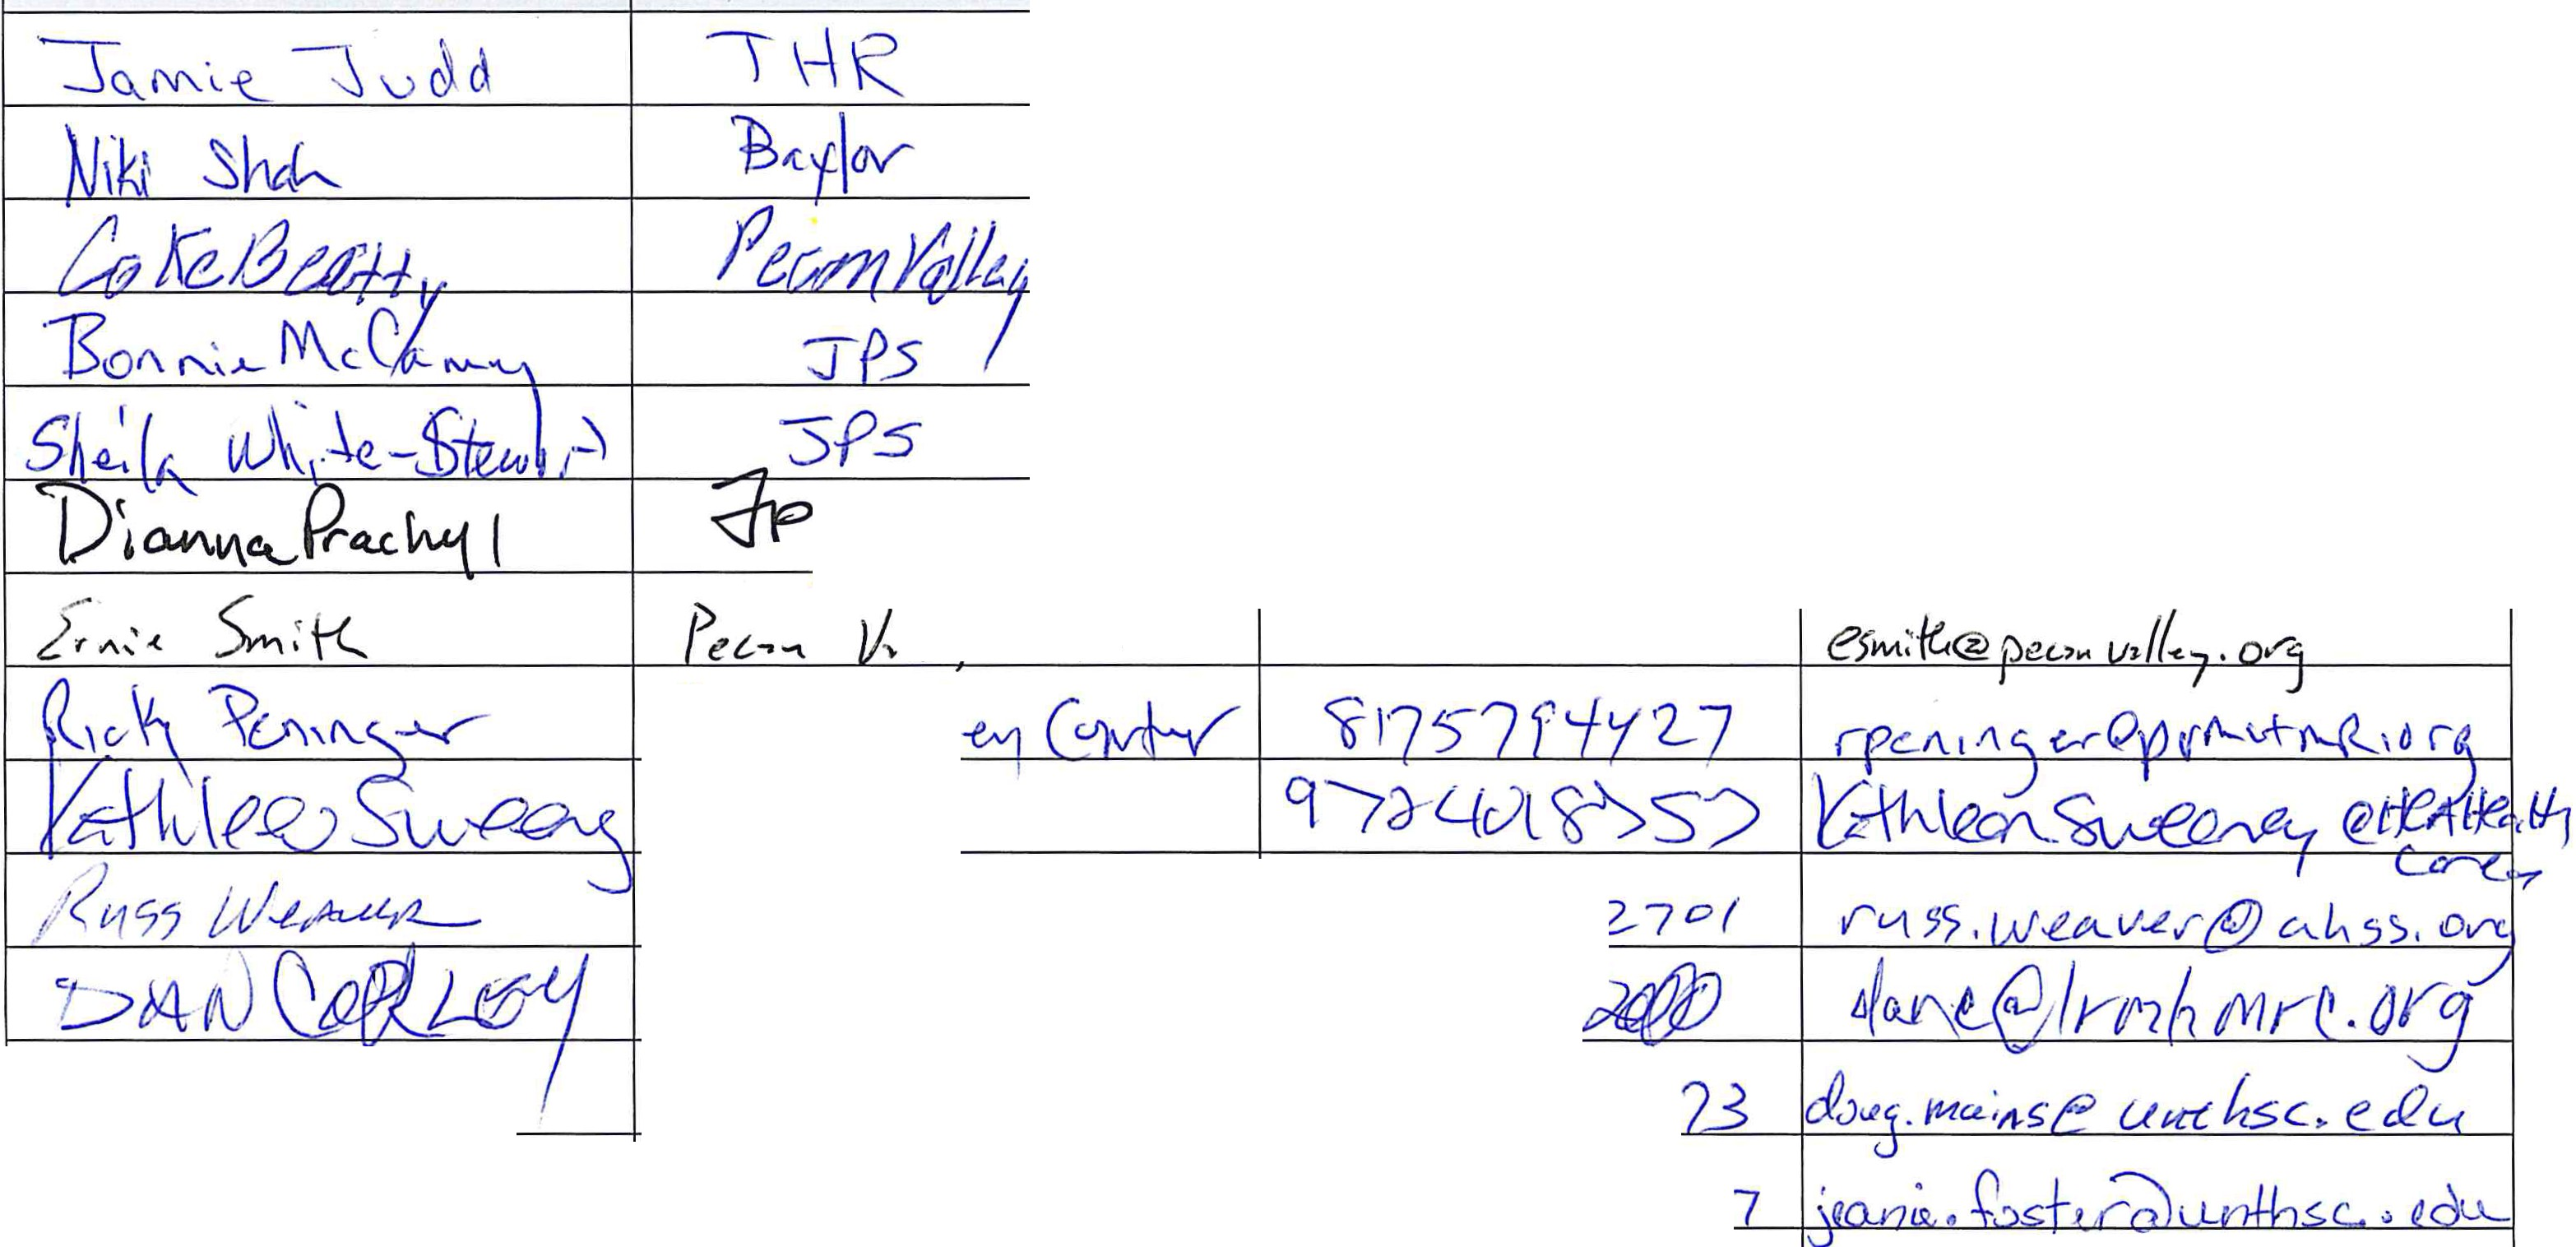 Jamie Judd THR
Niki Shah Baylor
Coke Beatty Pecan Valley
Bonnie McCamey JPS
Sheila White-Stewart JPS
Dianna Prachyl Jp
Ernie Smith Pecan V esmith@pecanvalley.org
Ricky Peninger en Center 8175794427
Kathleen Sweeney Kathleen Sweeney @HCAHealth
care
Russ Weaver 2701 russ.weaver@ahss.org
DAN CORLEY
23 doug.mains@unthsc.edu
7 jeanie.foster@unthsc.edu